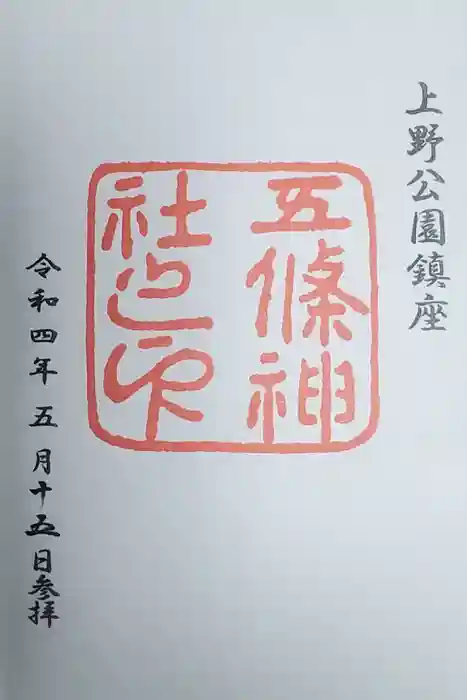 上野公園鎮座
五條神
社之印
令和四年五月十五日参拝